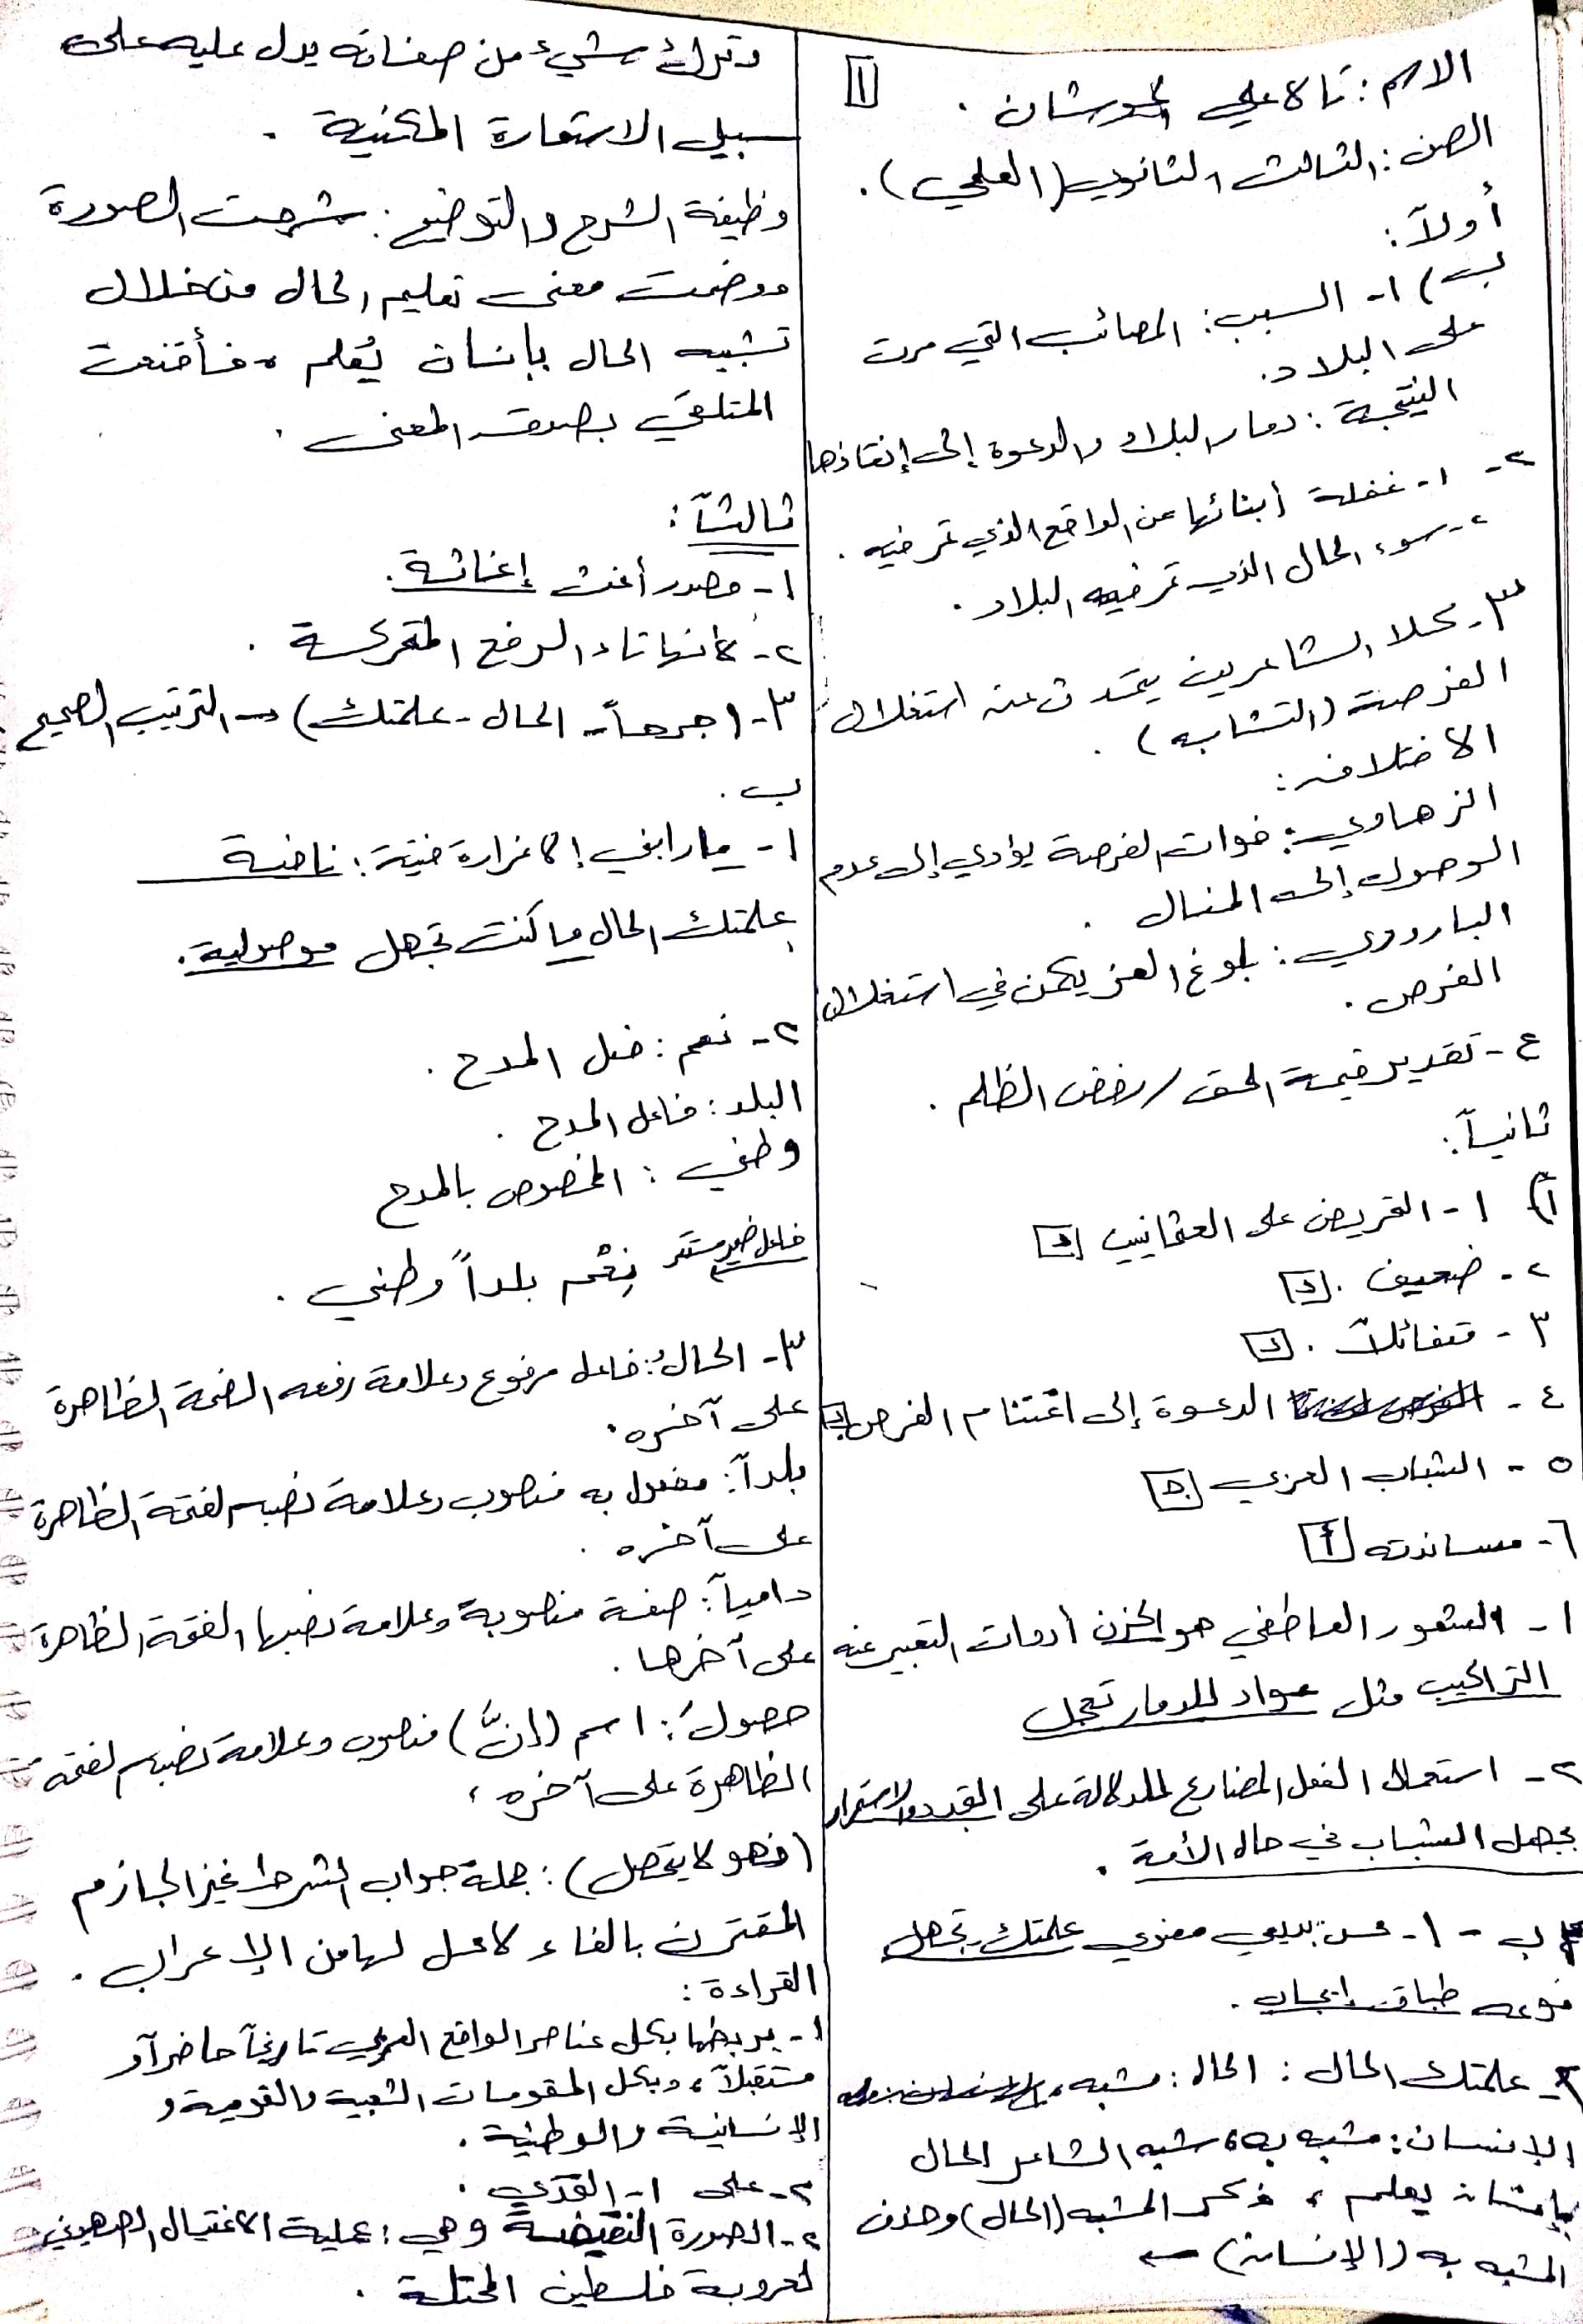 الاسم: تالا علي الحورشان. 1
الصف: الثالث الثانوي (العلمي).
أولاً:
ب) ١- السبب: المصائب التي مرت
على البلاد.
النتيجة: دمار البلاد والدعوة إلى إنقاذها
٢- ١- غفلة أبنائها عن الواقع الذي تمر فيه.
٢- سوء الحال الذي تمر فيه البلاد.
٣- كلا الشاعرين يتحدث عن استغلال
الفرصة (التشابه).
الاختلاف:
الزهاوي: فوات الفرصة يؤدي إلى عدم
الوصول إلى المنال.
البارودي: بلوغ العز يكمن في استغلال
الفرص.
٤- تقدير قيمة الحق / رفض الظلم.
ثانياً:
أ) ١- التحريض على العثمانيين
٢- ضعيف. د
٣- متفائلاً. د
٤- الدعوة إلى اغتنام الفرص
٥- الشباب العربي
٦- مساندته أ
١- الشعور العاطفي هو الحزن أدوات التعبير عنه
التراكيب مثل عواد للدمار تعجل
٢- استعمال الفعل المضارع للدلالة على التجدد والاستمرار
بجهل الشباب في حال الأمة.
ب - ١- محسن بديعي معنوي علمتك - تجهل
نوعه طباق إيجاب.
٢- علمتك الحال: الحال: مشبه،
الإنسان: مشبه به، شبه الشاعر الحال
بإنسان يعلم، ذكر المشبه (الحال) وحذف
المشبه به (الإنسان) ←
وترك شيء من صفاته يدل عليه على
سبيل الاستعارة المكنية.
وظيفة الشرح والتوضيح: شرحت الصورة
ووضحت معنى تعليم الحال من خلال
تشبيه الحال بإنسان يُعلم، فأقنعت
المتلقي بصدق المعنى.
ثالثاً:
١- مصدر أغث إغاثة.
٢- لأنها تاء الرفع المتحركة.
٣- (جرحاً - الحال - علمتك) → الترتيب الصحيح
ب.
١- ما رابني إلا غرارة فتية: نافية
علمتك الحال ما كنت تجهل موصولية.
٢- نعم: فعل المدح.
البلد: فاعل المدح.
وطني: المخصوص بالمدح
فاعل ضمير مستتر نِعْم بلداً وطني.
٣- الحالُ: فاعل مرفوع وعلامة رفعه الضمة الظاهرة
على آخره.
بلداً: مفعول به منصوب وعلامة نصبه الفتحة الظاهرة
على آخره.
دامياً: صفة منصوبة وعلامة نصبها الفتحة الظاهرة
على آخرها.
حصولَ: اسم (إنَّ) منصوب وعلامة نصبه الفتحة
الظاهرة على آخره،
(فهو لا يتحصل): جملة جواب الشرط غير الجازم
المقترن بالفاء لا محل لها من الإعراب.
القراءة:
١- يربطها بكل عناصر الواقع العربي تاريخاً حاضراً و
مستقبلاً، وبكل المقومات الشعبية والقومية و
الإنسانية والوطنية.
٢- على ١- التحدي.
٢- الصورة النقيضة وهي: عملية الاغتيال الصهيوني
لعروبة فلسطين المحتلة.